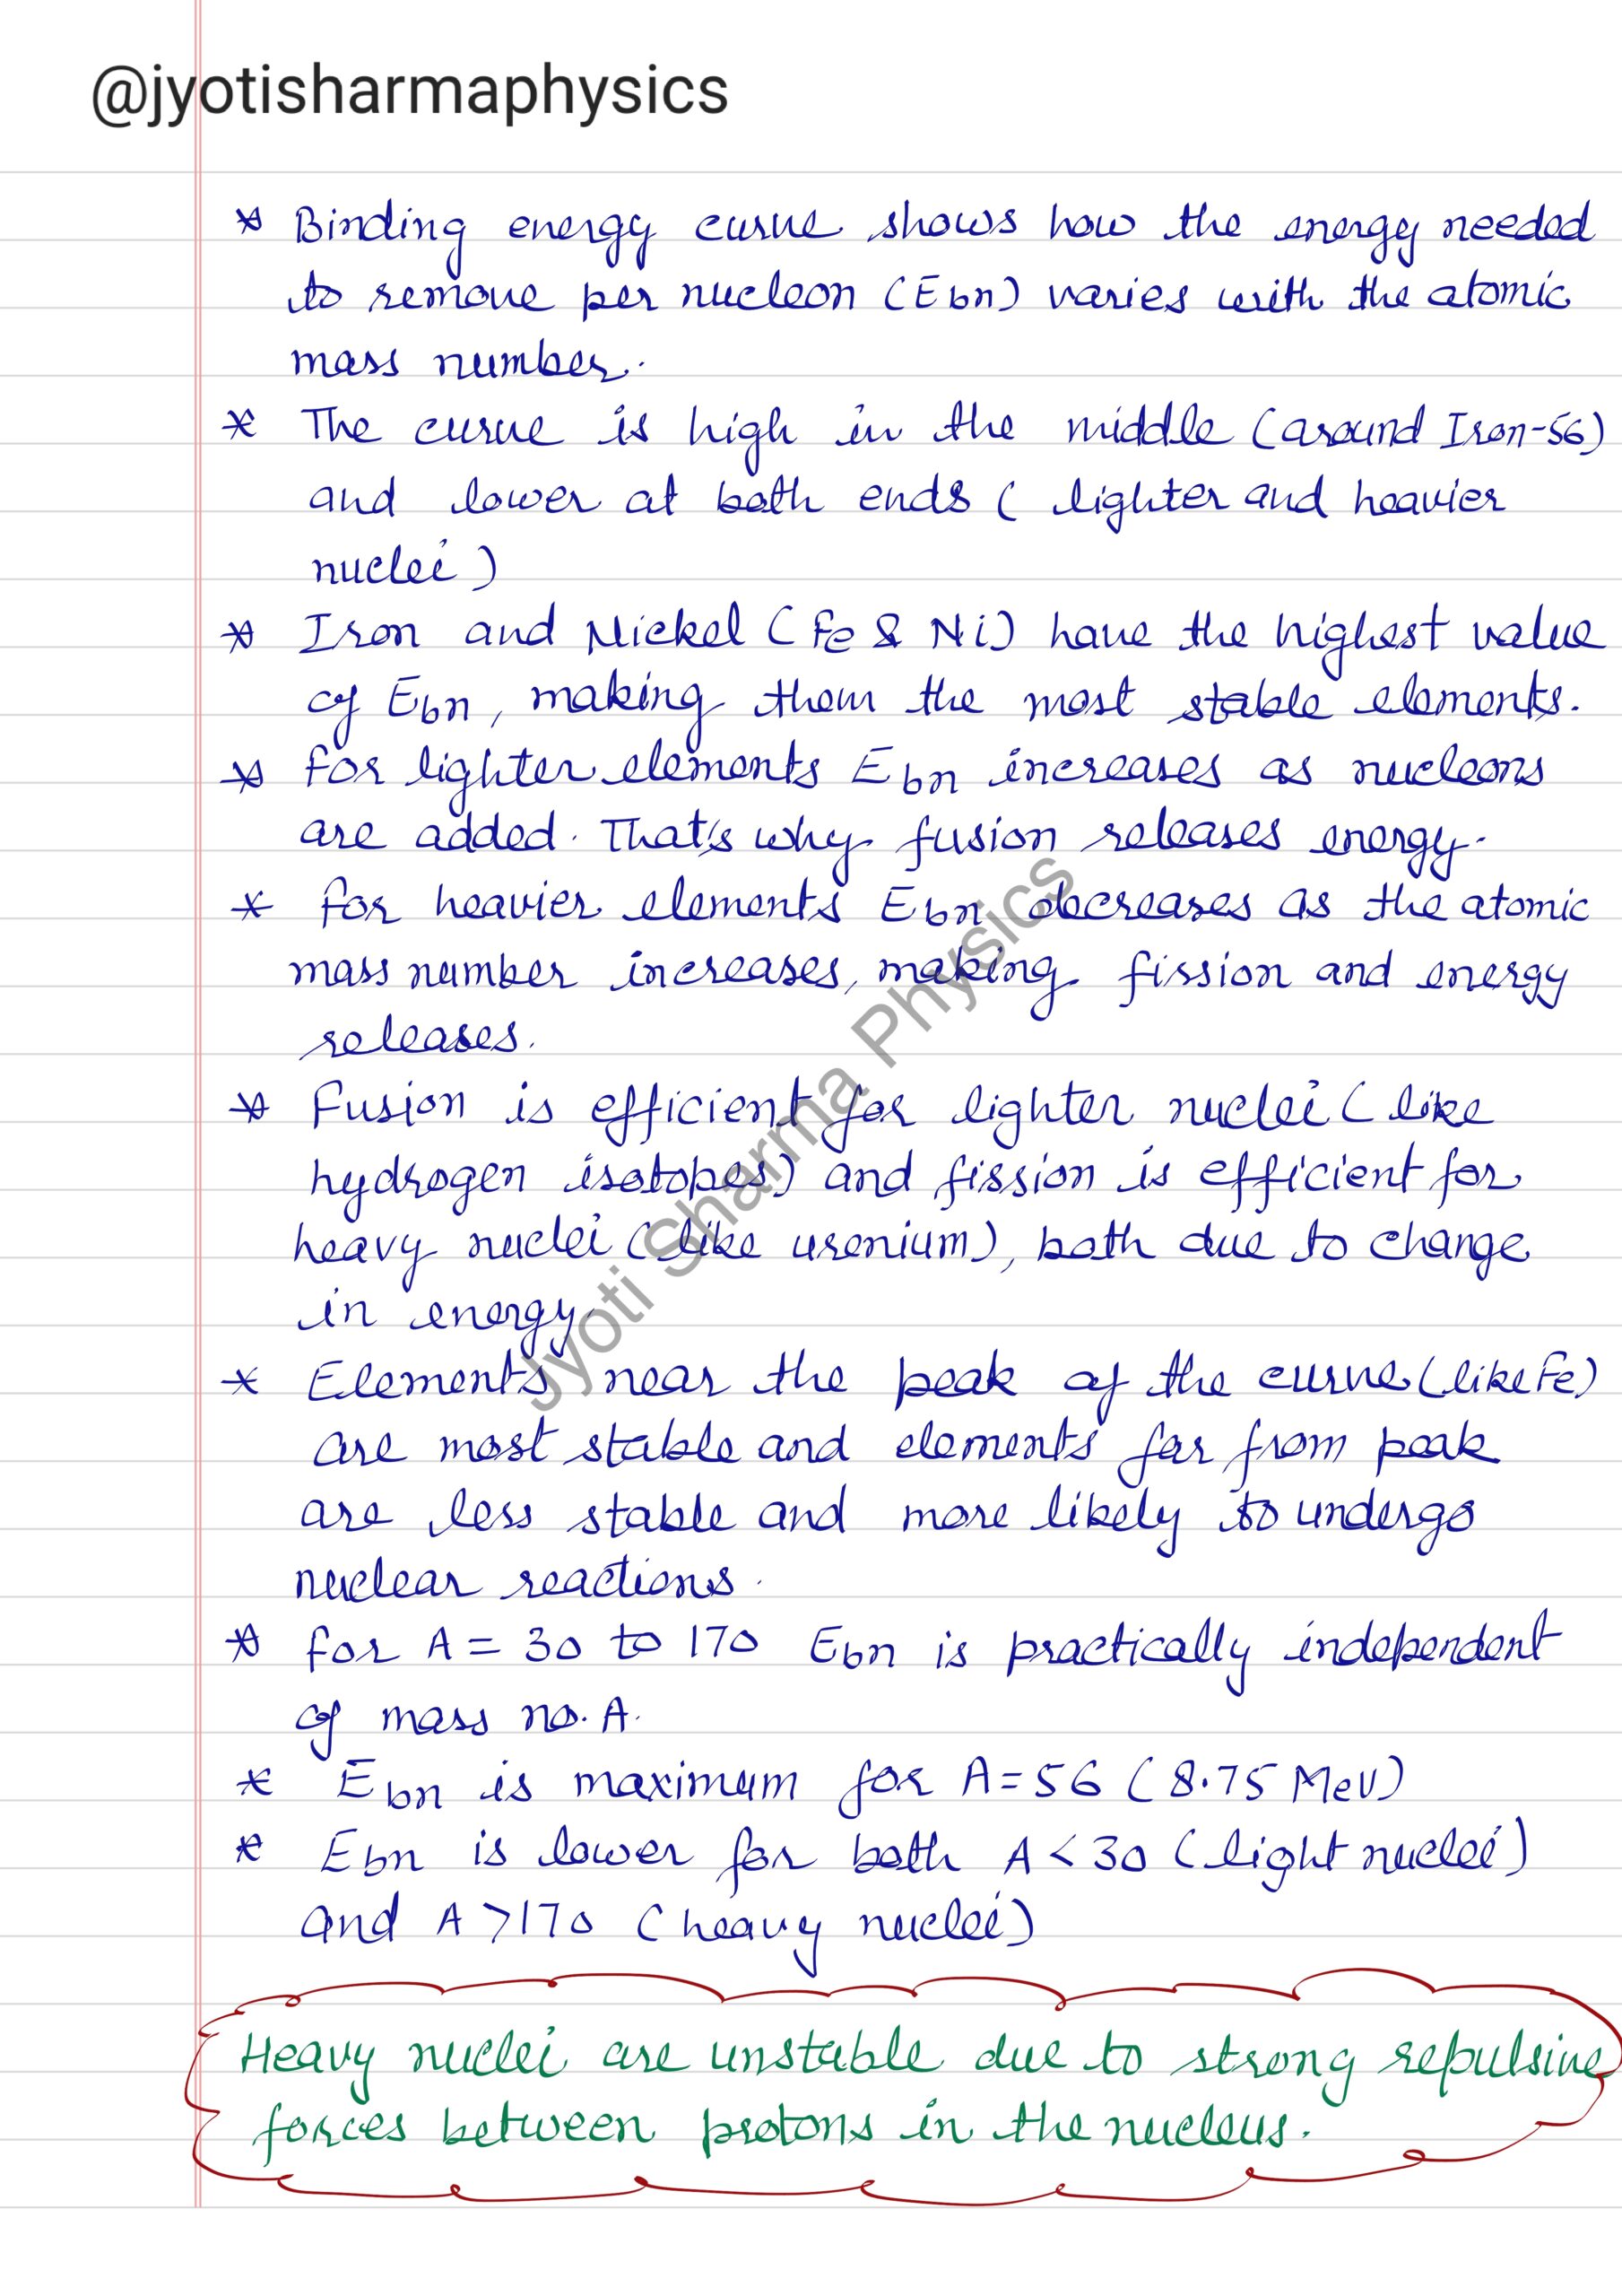 @jyotisharmaphysics
* Binding energy curve shows how the energy needed
to remove per nucleon (Ebn) varies with the atomic
mass number.
* The curve is high in the middle (around Iron-56)
and lower at both ends ( lighter and heavier
nuclei )
* Iron and Nickel ( Fe & Ni) have the highest value
of Ebn, making them the most stable elements.
* for lighter elements Ebn increases as nucleons
are added. That's why fusion releases energy.
* for heavier elements Ebn decreases as the atomic
mass number increases, making fission and energy
releases.
* Fusion is efficient for lighter nuclei ( like
hydrogen isotopes) and fission is efficient for
heavy nuclei (like urenium), both due to change
in energy.
* Elements near the peak of the curve (like Fe)
are most stable and elements far from peak
are less stable and more likely to undergo
nuclear reactions.
* for A = 30 to 170 Ebn is practically independent
of mass no. A.
* Ebn is maximum for A = 56 ( 8.75 MeV)
* Ebn is lower for both A < 30 ( light nuclei )
and A > 170 ( heavy nuclei )
Heavy nuclei are unstable due to strong repulsive
forces between protons in the nucleus.
Jyoti Sharma Physics